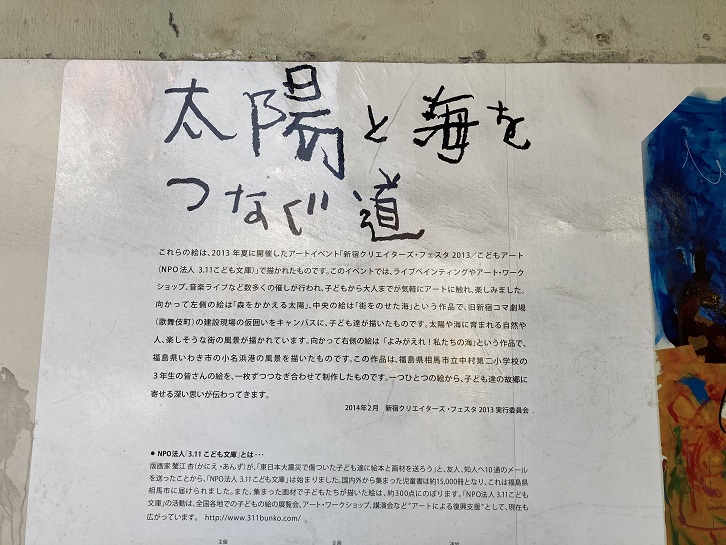 太陽と海を
つなぐ道
これらの絵は、2013年夏に開催したアートイベント「新宿クリエイターズ・フェスタ2013／こどもアート
（NPO法人 3.11こども文庫）」で描かれたものです。このイベントでは、ライブペインティングやアート・ワーク
ショップ、音楽ライブなど数多くの催しが行われ、子どもから大人までが気軽にアートに触れ、楽しみました。
向かって左側の絵は「森をかかえる太陽」、中央の絵は「街をのせた海」という作品で、旧新宿コマ劇場
（歌舞伎町）の建設現場の仮囲いをキャンパスに、子ども達が描いたものです。太陽や海に育まれる自然や
人、楽しそうな街の風景が描かれています。向かって右側の絵は「よみがえれ！私たちの海」という作品で、
福島県いわき市の小名浜港の風景を描いたものです。この作品は、福島県相馬市立中村第二小学校の
3年生の皆さんの絵を、一枚ずつつなぎ合わせて制作したものです。一つひとつの絵から、子ども達の故郷に
寄せる深い思いが伝わってきます。
2014年2月　新宿クリエイターズ・フェスタ2013 実行委員会
● NPO法人「3.11 こども文庫」とは・・・
版画家 蟹江 杏（かにえ・あんず）が、「東日本大震災で傷ついた子ども達に絵本と画材を送ろう」と、友人、知人へ10通のメール
を送ったことから、「NPO法人 3.11こども文庫」は始まりました。国内外から集まった児童書は約15,000冊となり、これは福島県
相馬市に届けられました。また、集まった画材で子どもたちが描いた絵は、約300点にのぼります。「NPO法人3.11こども
文庫」の活動は、全国各地での子どもの絵の展覧会、アート・ワークショップ、講演会など“アートによる復興支援”として、現在も
広がっています。 http://www.311bunko.com/
主催　企画